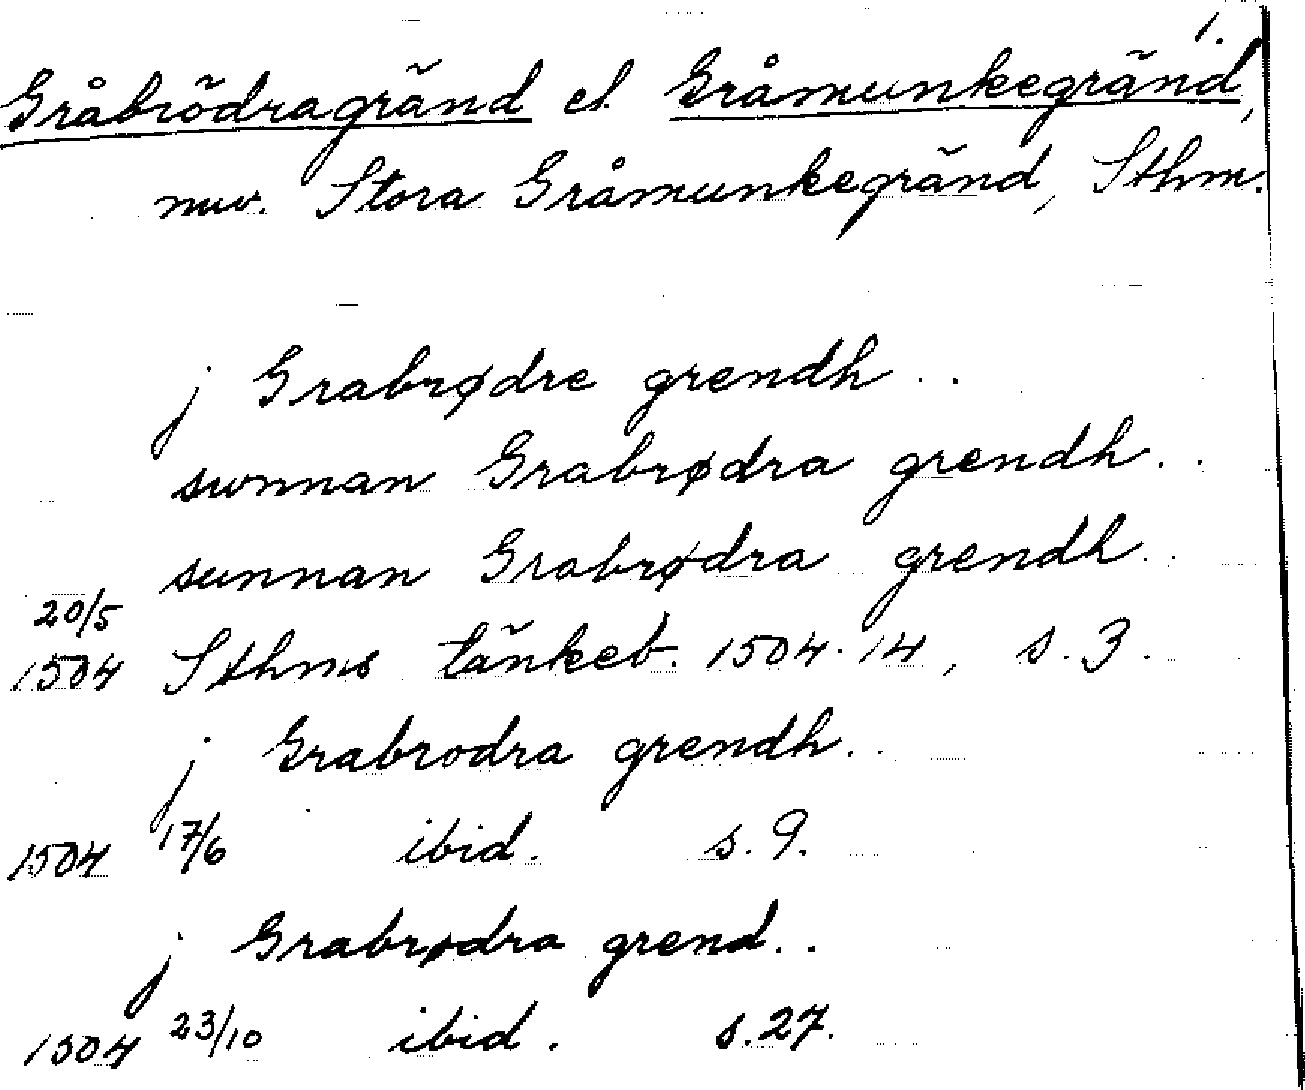 1.
Gråbrödragränd el. Gråmunkegränd,
nuv. Stora Gråmunkegränd, Sthm.
j Grabrødre grendh ..
swnnan Grabrødra grendh ..
sunnan Grabrødra grendh ..
20/5
1504 Sthms tänkeb. 1504-14, s. 3.
j Grabrodra grendh ..
1504 17/6 ibid. s. 9.
j Grabrødra grend ..
1504 23/10 ibid. s. 27.